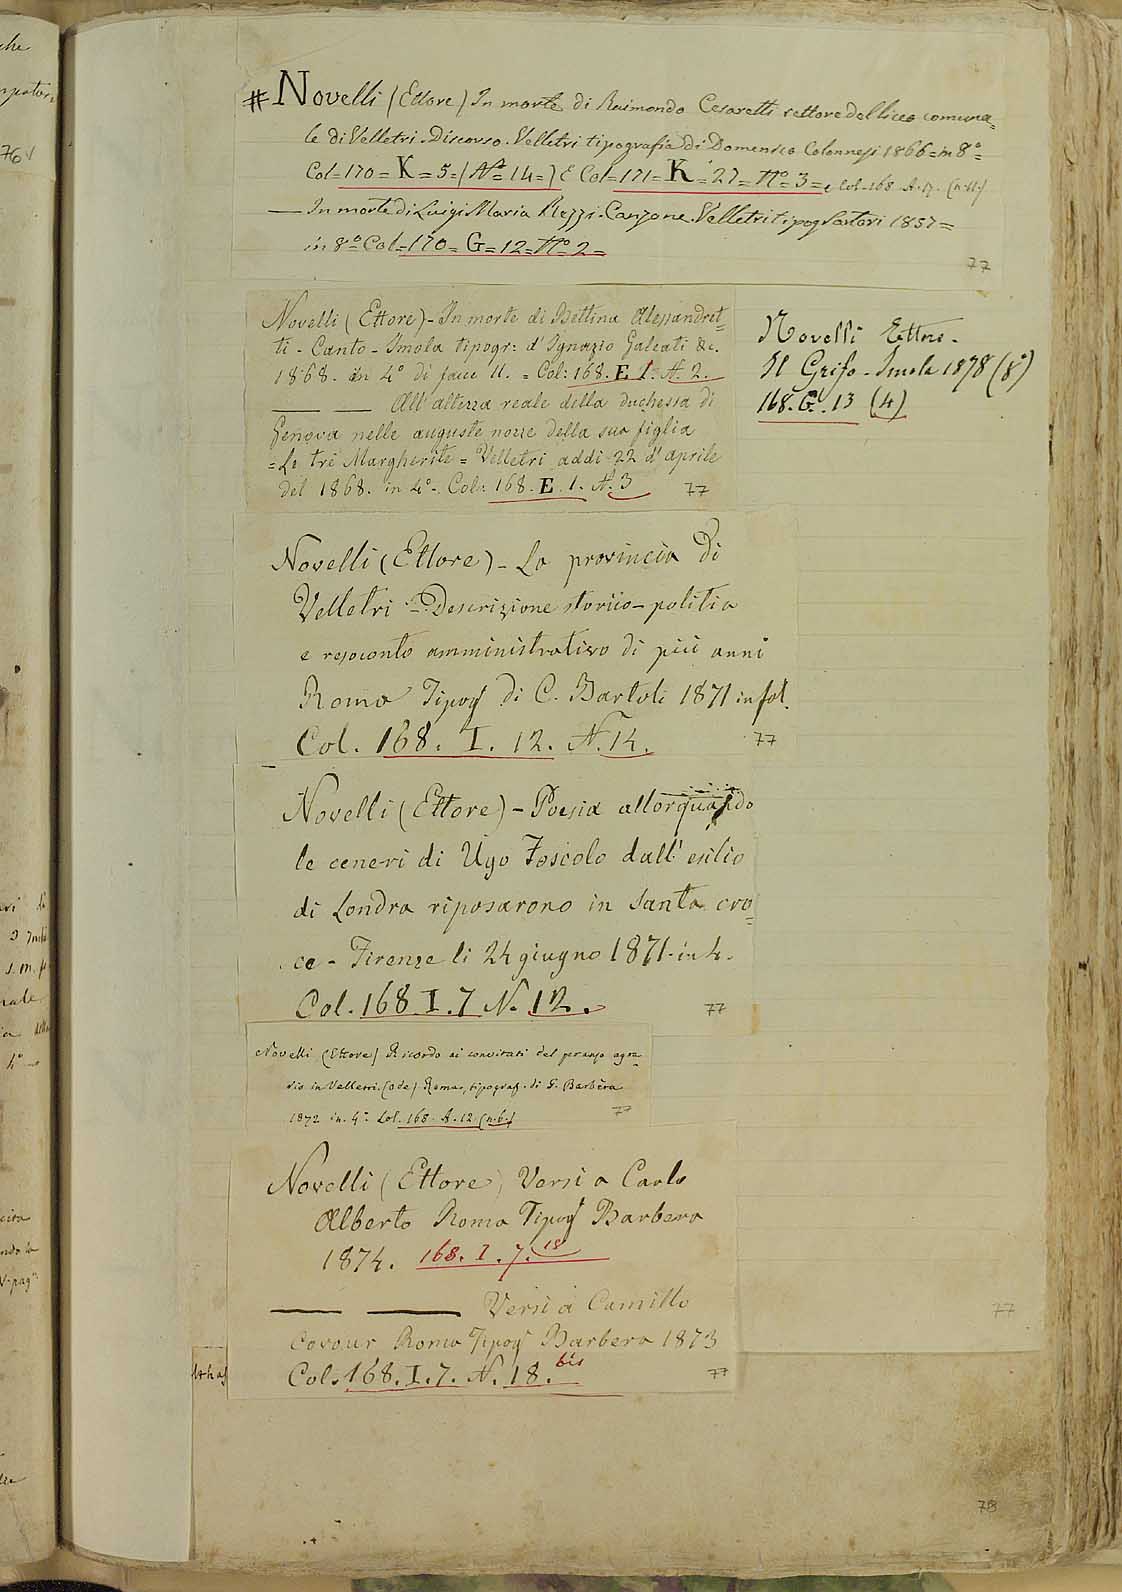 # Novelli (Ettore) In morte di Raimondo Cesaretti rettore del liceo comuna=
le di Velletri. Discorso. Velletri tipografia di Domenico Colonnesi 1866=in 8°=
Col=170=K=5=(N°=14=) E Col=171=K=27=N°=3=, Col. 168. A. 17. (n. 11.)
— In morte di Luigi Maria Rezzi. Canzone. Velletri tipog Sartori 1857=
in 8° Col=170=G=12=N° 2=
77
Novelli (Ettore)-In morte di Bettina Alessandret=
ti-Canto-Imola tipogr: d'Ignazio Galeati &c.
1868. in 4° di facce 11.=Col: 168. E 1. N. 2.
— — All'altezza reale della duchessa di
Genova nelle auguste nozze della sua figlia
=Le tre Margherite=Velletri addì 22 d'aprile
del 1868. in 4°-Col: 168. E. 1. N. 3
77
Novelli Ettore-
Il Grifo-Imola 1878 (8°)
168. G. 13 (4)
Novelli (Ettore)-La provincia di
Velletri=Descrizione storico-politica
e resoconto amministrativo di più anni
Roma Tipog di C. Bartoli 1871 in fol.
Col. 168. I. 12. N. 14.
77
Novelli (Ettore)-Poesia allorquando
le ceneri di Ugo Foscolo dall'esilio
di Londra riposarono in Santa cro=
ce-Firenze li 24 giugno 1871-in 4.
Col. 168 I. 7 N. 12.
77
Novelli (Ettore) Ricordo ai convitati del pranzo agra=
rio in Velletri. (Ode) Roma, tipograf. di G. Barbèra
1872 in. 4° Col. 168. A. 12 (n. 6.)
77
Novelli (Ettore) Versi a Carlo
Alberto Roma Tipog Barbera
1874. 168. I. 7. 18
— — Versi a Camillo
Cavour Roma Tipog Barbera 1873
Col. 168. I. 7. N. 18. bis
77
77
78